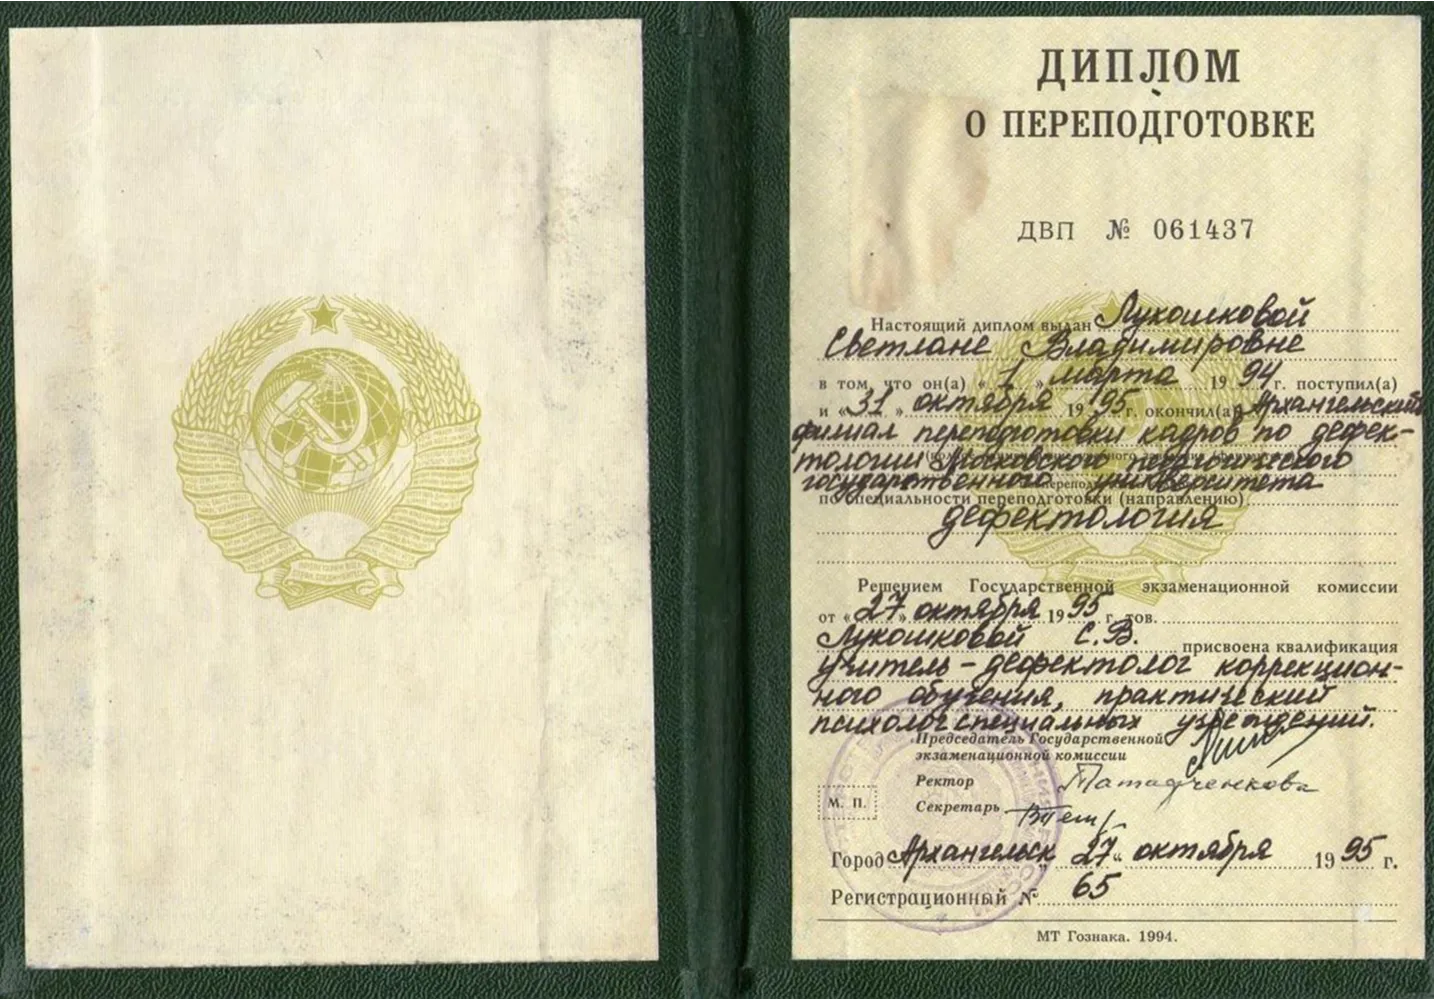 ДИПЛОМ
О ПЕРЕПОДГОТОВКЕ
ДВП № 061437
Настоящий диплом выдан Лукошковой
Светлане Владимировне
в том, что он(а) « 1 » марта 19 94 г. поступил(а)
и « 31 » октября 19 95 г. окончил(а) Архангельский
филиал переподготовки кадров по дефек-
тологии Московского педагогического
государственного университета
по специальности переподготовки (направлению)
дефектология
Решением Государственной экзаменационной комиссии
от « 27 » октября 19 95 г. тов.
Лукошковой С.В. присвоена квалификация
учитель-дефектолог коррекцион-
ного обучения, практический
психолог специальных учреждений.
Председатель Государственной
экзаменационной комиссии
Ректор
Секретарь
М. П.
Город Архангельск 27 " октября 19 95 г.
Регистрационный № 65
МТ Гознака. 1994.